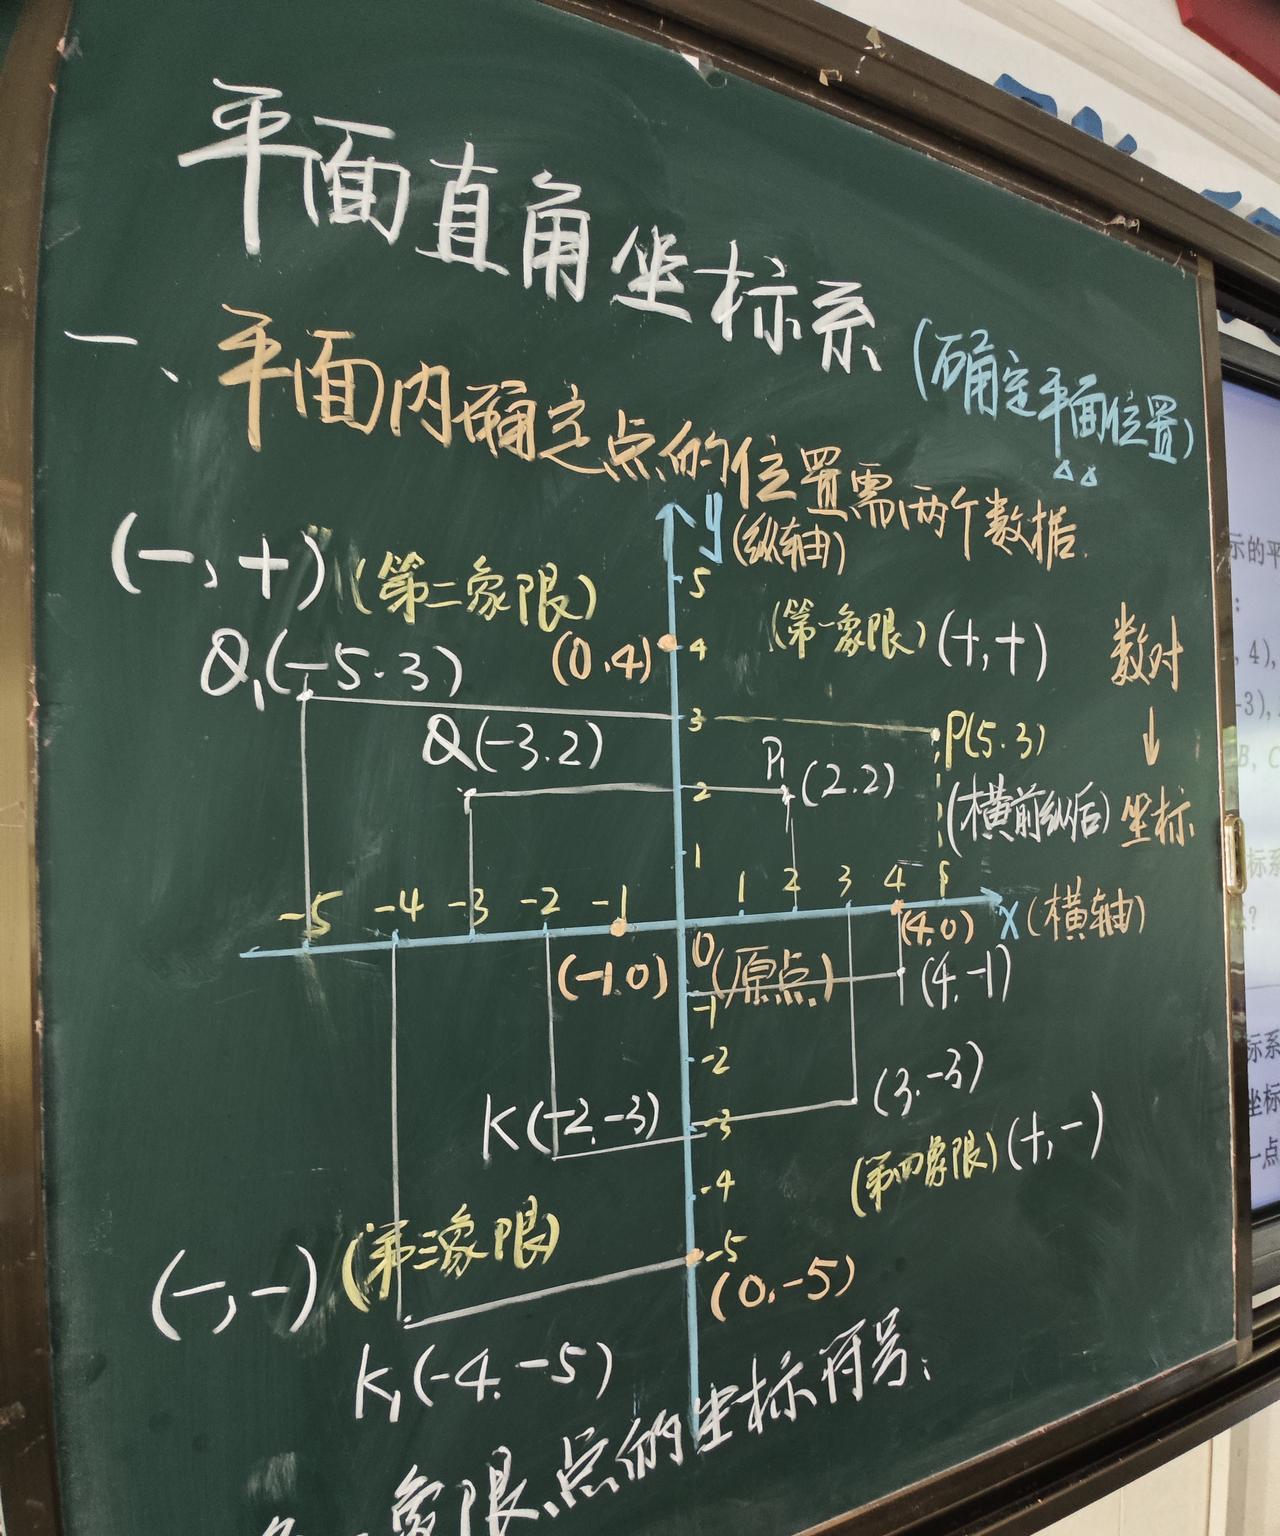 平面直角坐标系
(确定平面位置)
一、平面内确定点的位置需两个数据.
y
(纵轴)
5
(-,+) (第二象限)
(第一象限) (+,+)
数对
↓
坐标
Q₁(-5.3)
(0.4)
4
3
P(5.3)
Q(-3.2)
P₁(2.2)
2
(横前纵后)
1
-5 -4 -3 -2 -1
1 2 3 4 5
x (横轴)
(-1.0)
0 (原点)
(4.0)
(4.-1)
-1
-2
K(-2.-3)
-3
(3.-3)
(第四象限) (+,-)
-4
(-,-) (第三象限)
-5
(0.-5)
K₁(-4.-5)
象限点的坐标符号:
示的平
:
, 4),
-3),
B, C
标系
?
标系
坐标
一点